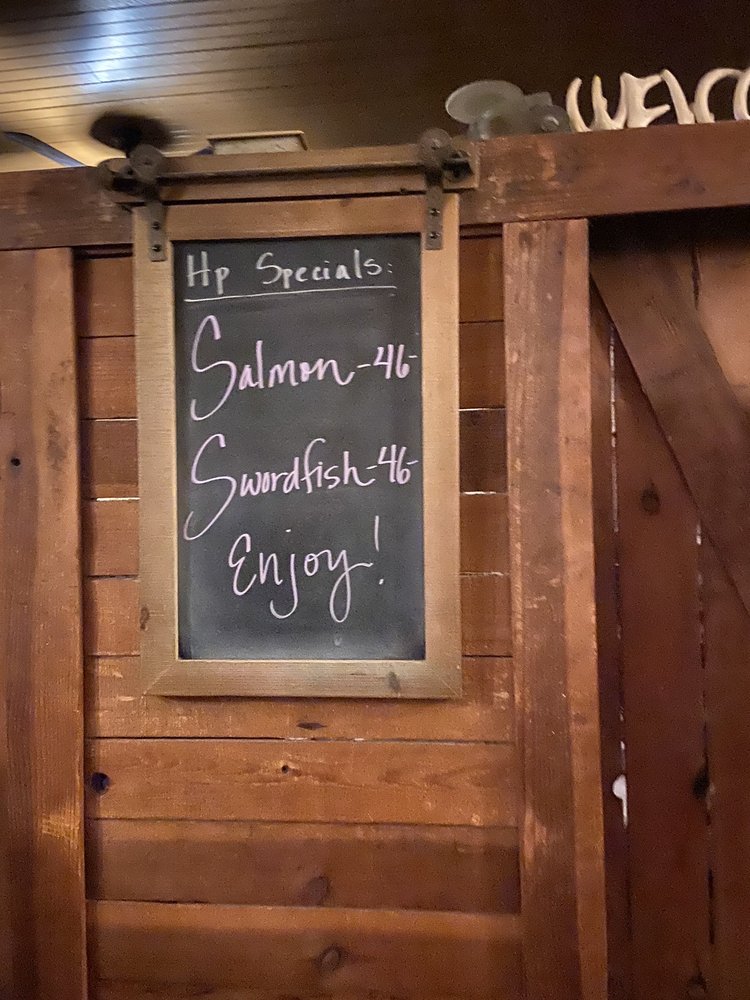 WELCO
Hp Specials:
Salmon-46-
Swordfish-46-
Enjoy!